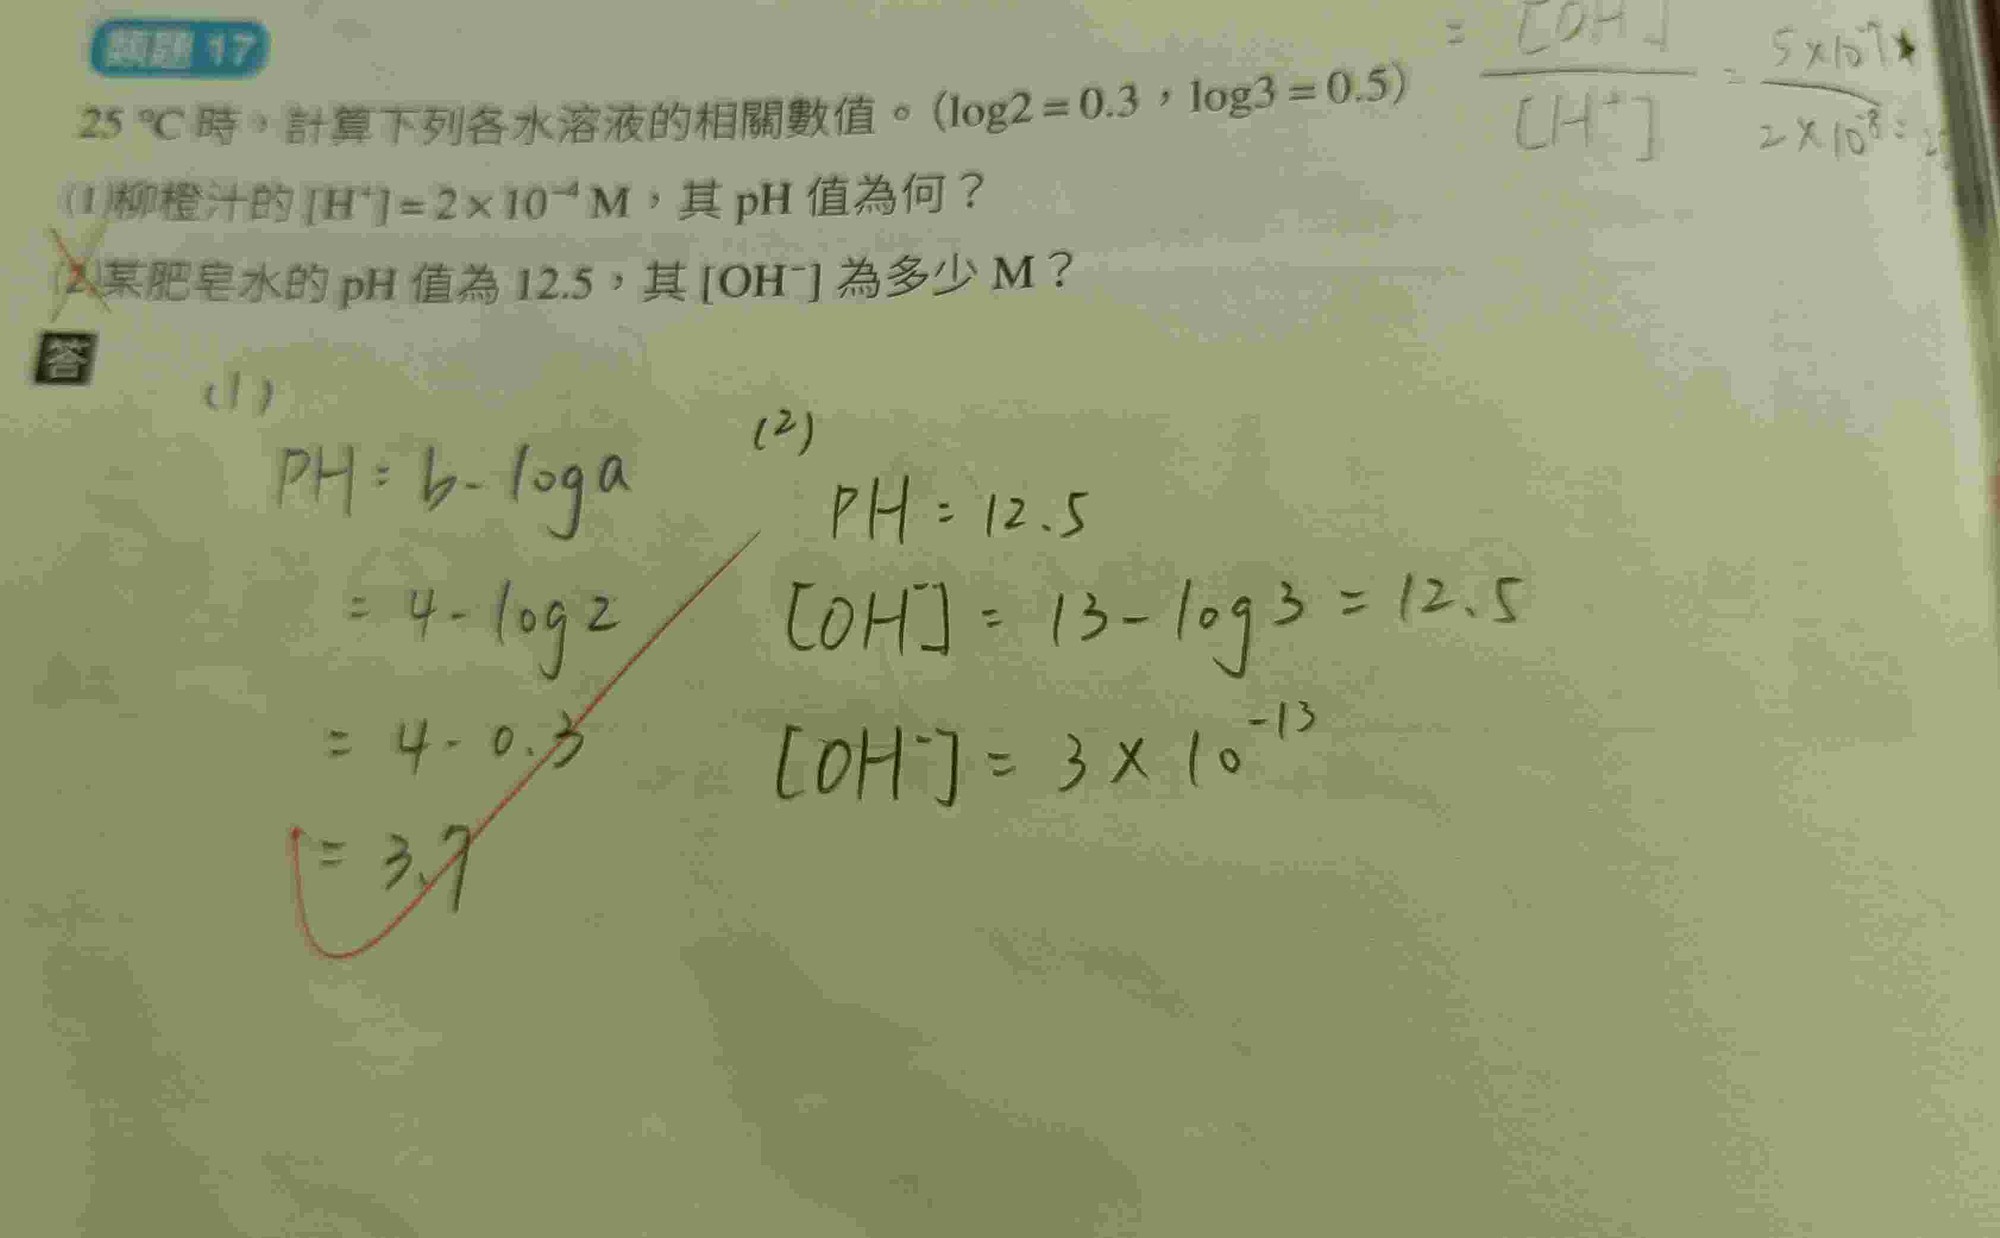 類題 17
25 ℃ 時，計算下列各水溶液的相關數值。(log2 = 0.3，log3 = 0.5)
(1)柳橙汁的 [H⁺] = 2 × 10⁻⁴ M，其 pH 值為何？
(2)某肥皂水的 pH 值為 12.5，其 [OH⁻] 為多少 M？
= [OH⁻] / [H⁺] = 5 × 10⁻⁷ / 2 × 10⁻⁸ =
答
(1)
PH = b - log a
= 4 - log 2
= 4 - 0.3
= 3.7
(2)
PH = 12.5
[OH⁻] = 13 - log 3 = 12.5
[OH⁻] = 3 × 10⁻¹³